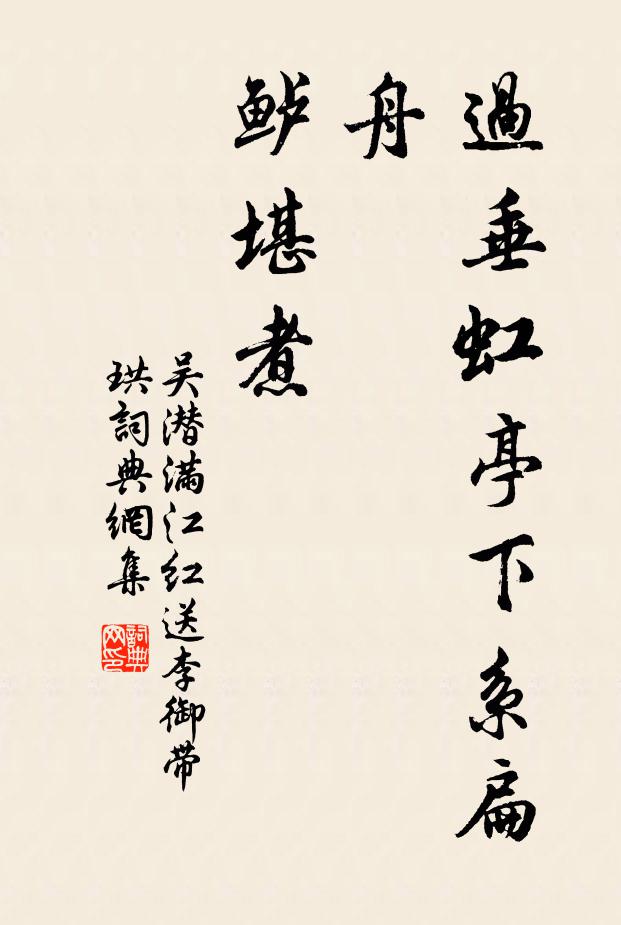 過垂虹亭下系扁
舟
鲈堪煮
吴潜满江红送李御带
珙詞典網集
詞典网印